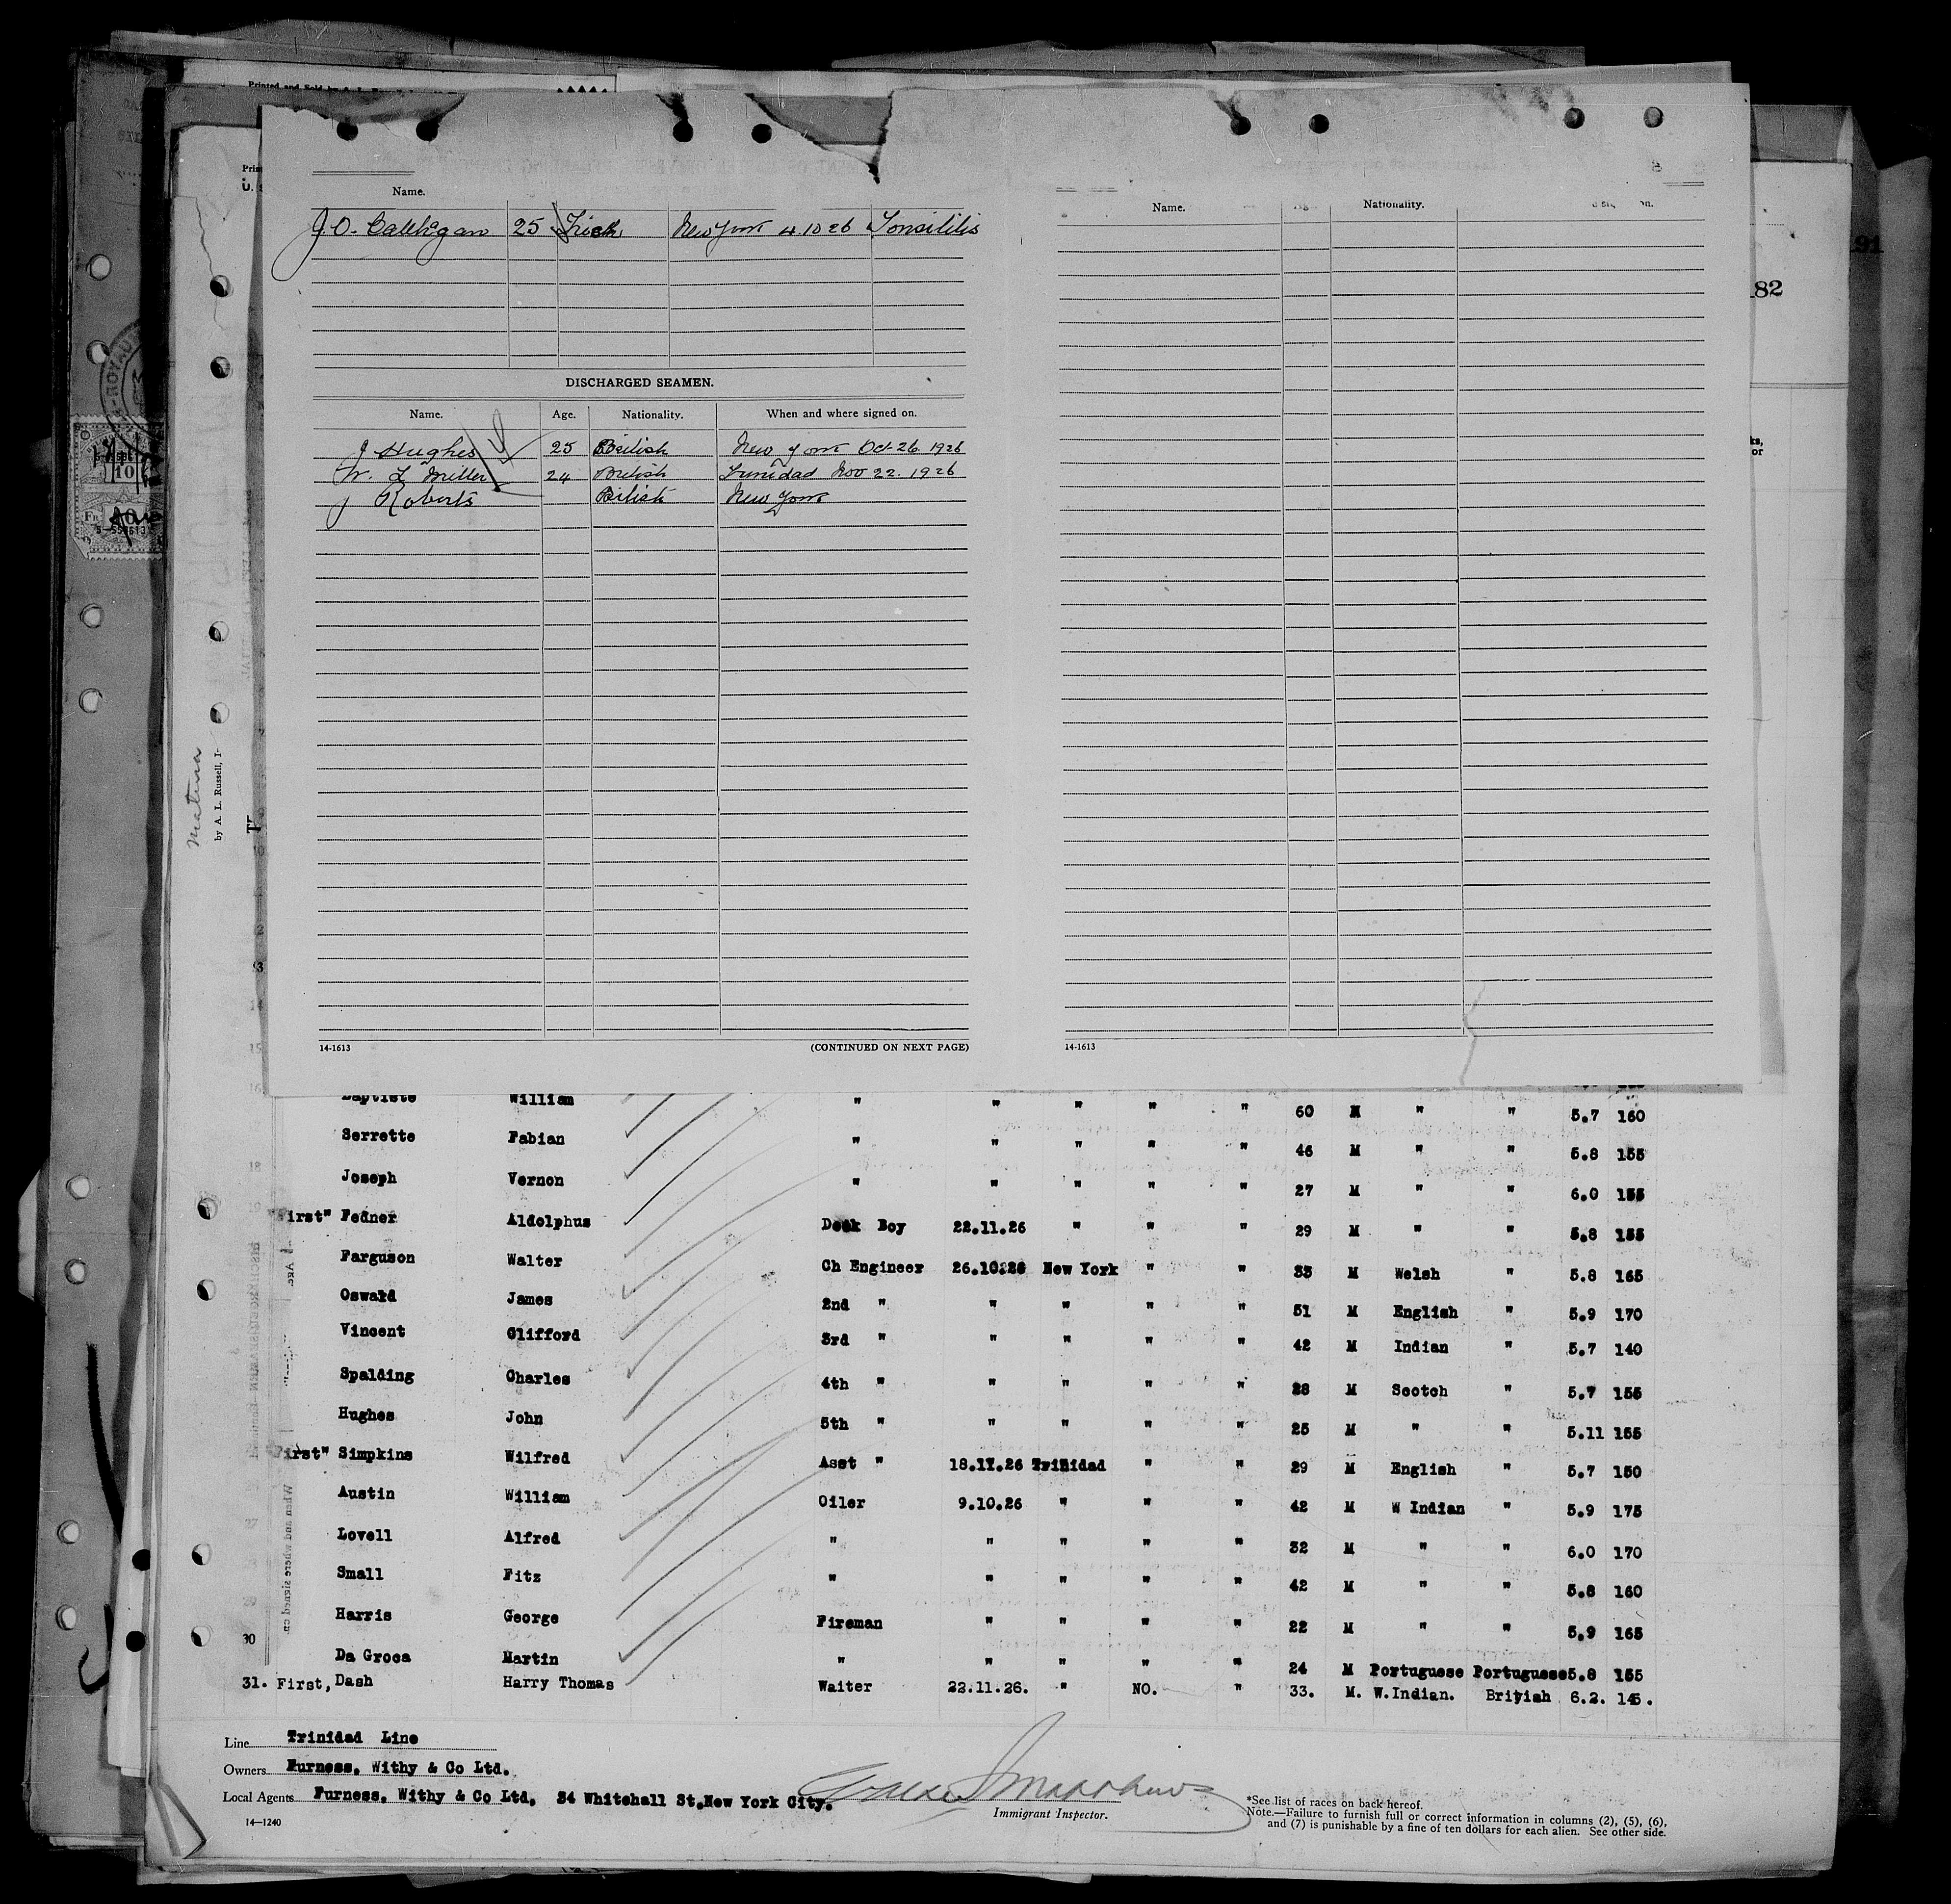 Printed and Sold by A. L.
Name.
J O. Callligan 25 Irish New York 4.10 26 Tonsilitis
DISCHARGED SEAMEN.
Name. Age. Nationality. When and where signed on.
J Hughes 25 British New York Oct 26. 1926
W. L Miller 24 British Trinidad Nov 22. 1926
J Roberts British New York
14-1613 (CONTINUED ON NEXT PAGE)
Name. Nationality.
14-1613
82
91
Matura
by A. L. Russell, I
Baptiste William " " " " " 60 M " " 5.7 160
Serrette Fabian " " " " " 46 M " " 5.8 155
Joseph Vernon " " " " " 27 M " " 6.0 155
"First" Fedner Aldolphus Deck Boy 22.11.26 " " " 29 M " " 5.8 155
Farguson Walter Ch Engineer 26.10.26 New York " " 33 M Welsh " 5.8 165
Oswald James 2nd " " " " " 51 M English " 5.9 170
Vincent Clifford 3rd " " " " " 42 M Indian " 5.7 140
Spalding Charles 4th " " " " " 28 M Scotch " 5.7 155
Hughes John 5th " " " " " 25 M " " 5.11 155
"First" Simpkins Wilfred Asst " 18.11.26 Trinidad " " 29 M English " 5.7 150
Austin William Oiler 9.10.26 " " " 42 M W Indian " 5.9 175
Lovell Alfred " " " " " 32 M " " 6.0 170
Small Fitz " " " " " 42 M " " 5.8 160
Harris George Fireman " " " " 22 M " " 5.9 165
30 Da Groca Martin " " " " " 24 M Portuguese Portuguese 5.8 155
31. First, Dash Harry Thomas Waiter 22.11.26. " NO. " 33. M. W.Indian. British 6.2. 145.
Line Trinidad Line
Owners Furness, Withy & Co Ltd.
Local Agents Furness, Withy & Co Ltd. 34 Whitehall St.New York City.
Immigrant Inspector.
14—1240
*See list of races on back hereof.
Note.—Failure to furnish full or correct information in columns (2), (5), (6),
and (7) is punishable by a fine of ten dollars for each alien. See other side.